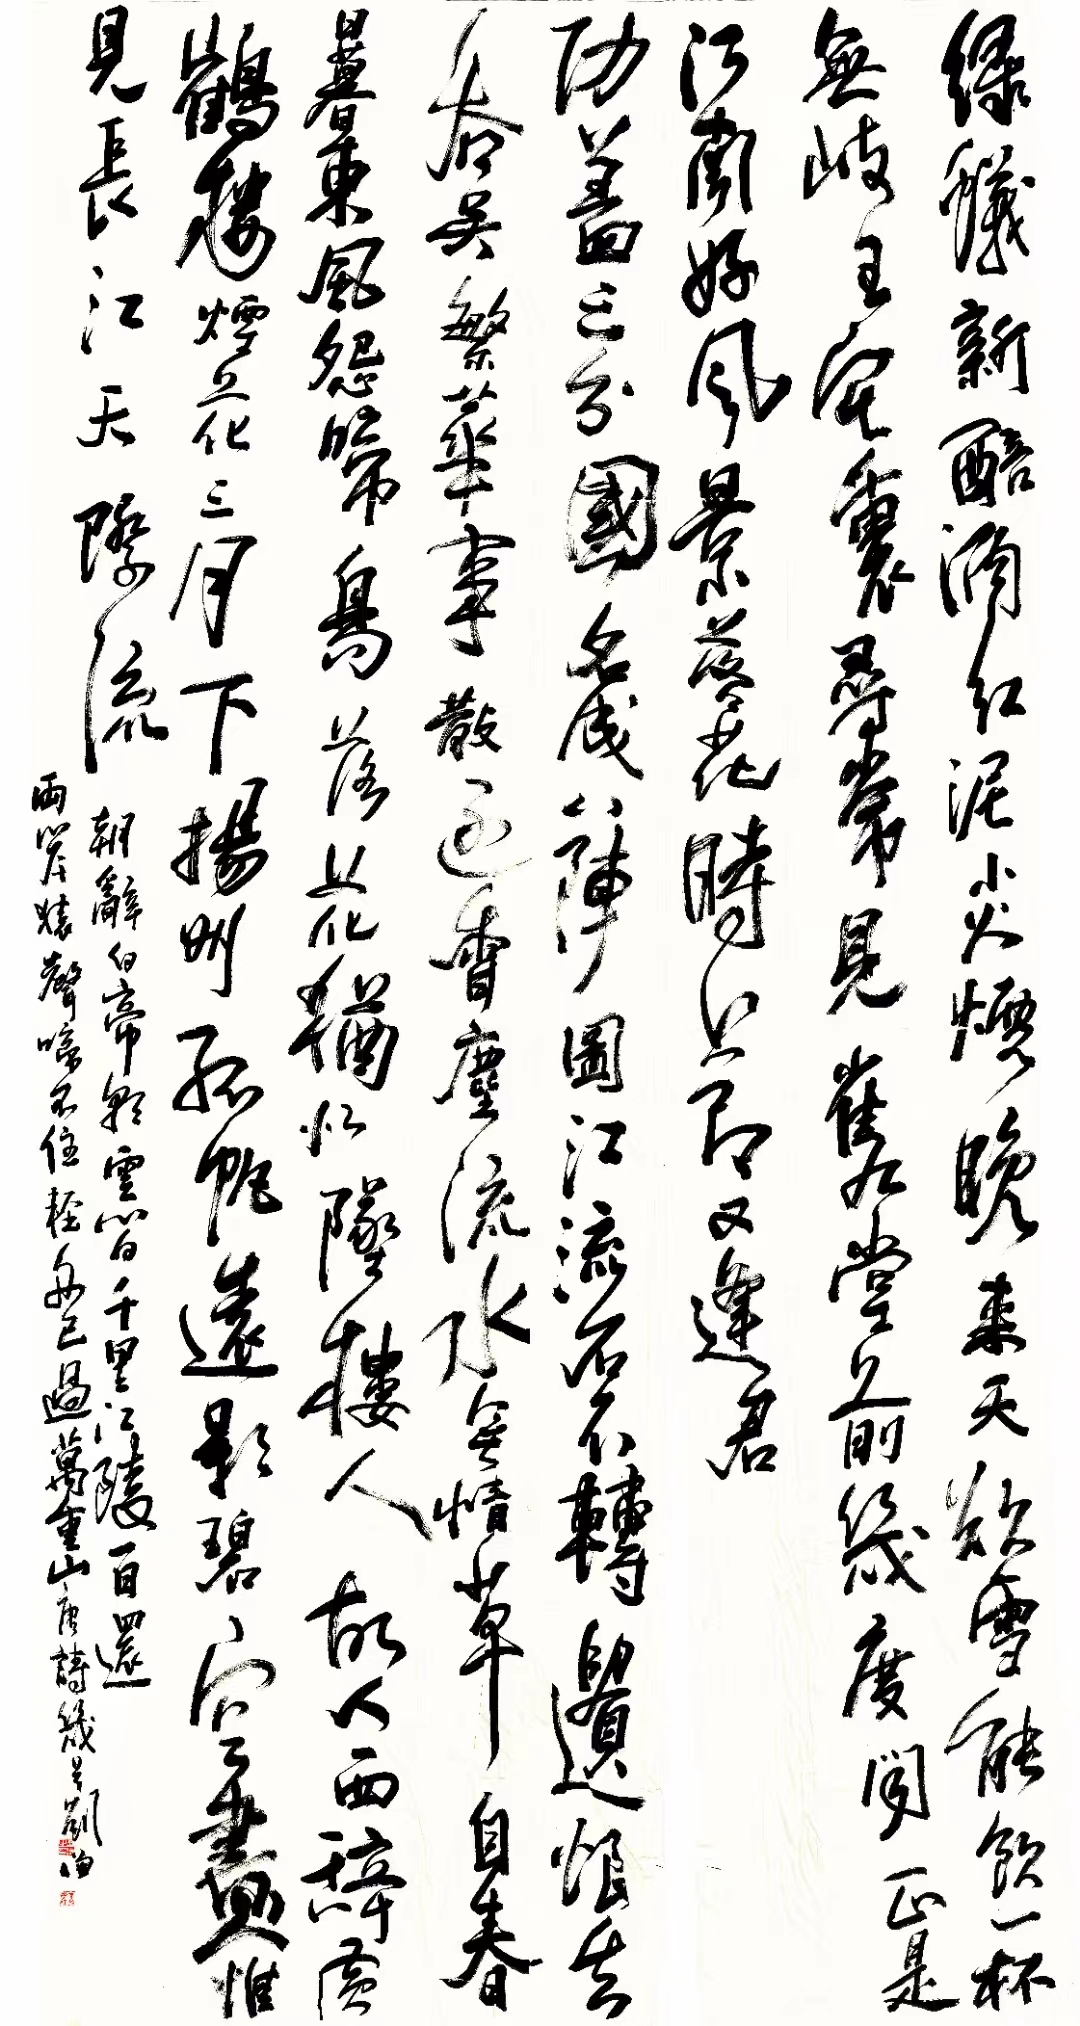 綠蟻新醅酒紅泥小火爐晚来天欲雪能飲一杯
無岐王宅裏尋常見崔九堂前幾度聞正是
江南好風景落花時節又逢君
功蓋三分國名成八陣圖江流石不轉遺恨失
吞吴繁華事散逐香塵流水無情草自春
日暮東風怨啼鳥落花猶似墜樓人故人西辭黄
鶴樓煙花三月下揚州孤帆遠影碧空盡惟
見長江天際流
朝辭白帝彩雲間千里江陵一日還
兩岸猿聲啼不住輕舟已過萬重山唐詩幾首劉